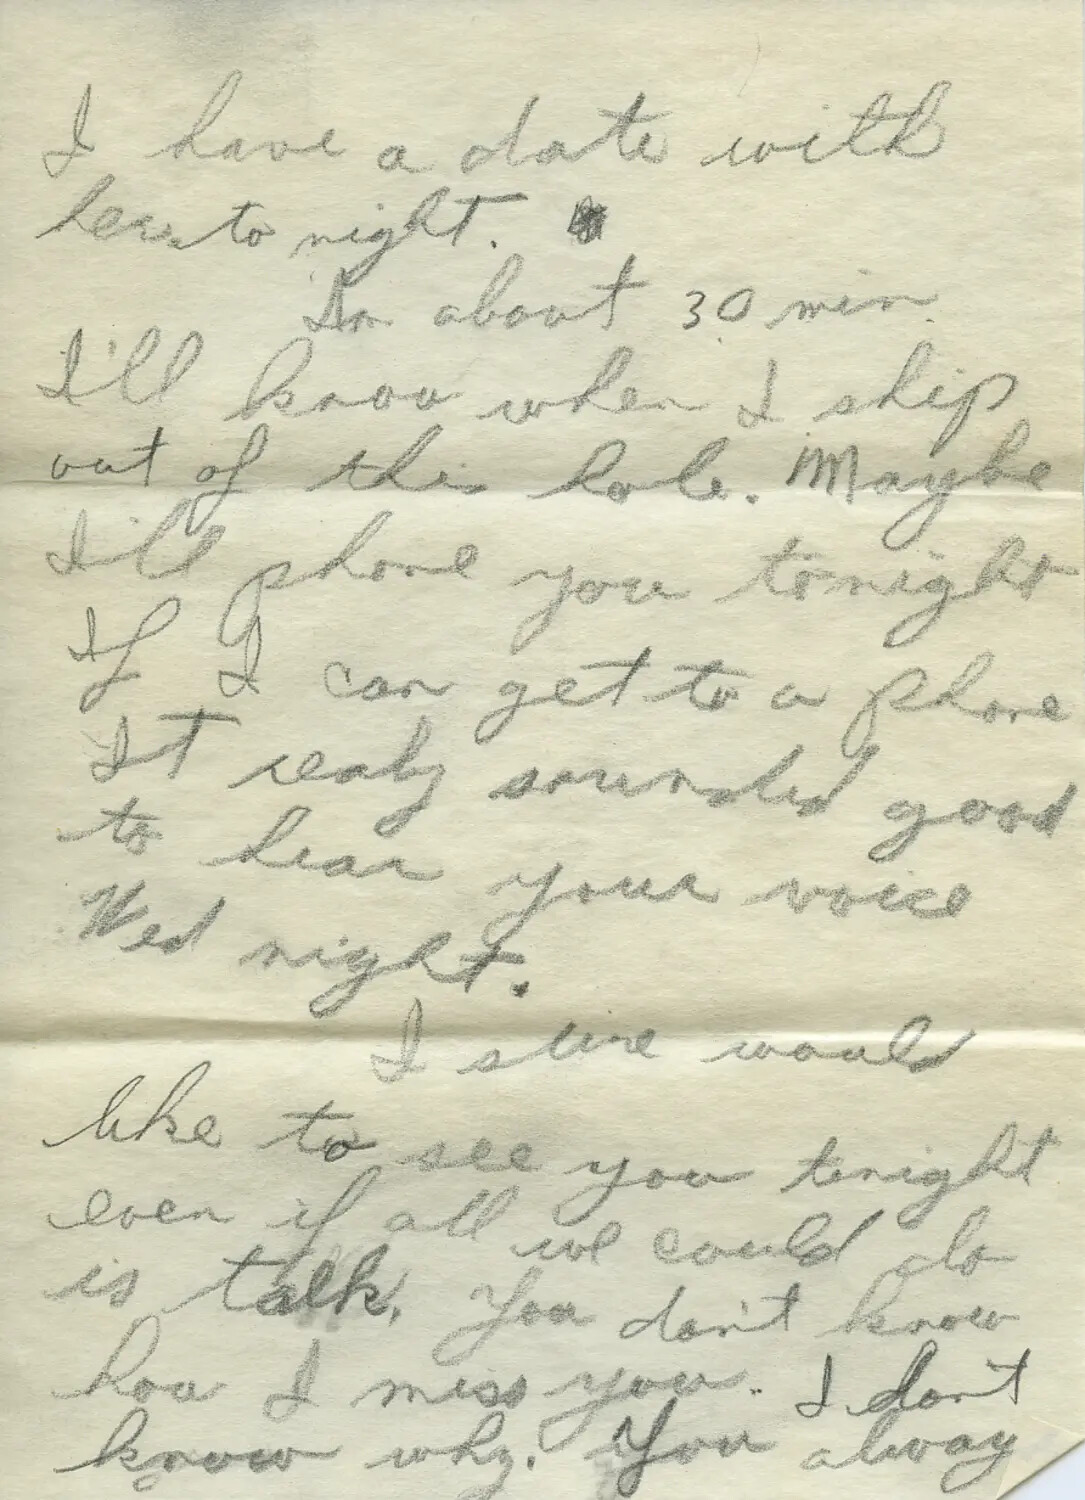 I have a date with
her to night.
In about 30 min.
I'll know when I ship
out of this hole. Maybe
I'll phone you tonight
If I can get to a phone
It realy sounded good
to hear your voice
Wed night.
I sure would
like to see you tonight
even if all we could do
is talk. You don't know
how I miss you. I don't
know why. You alway